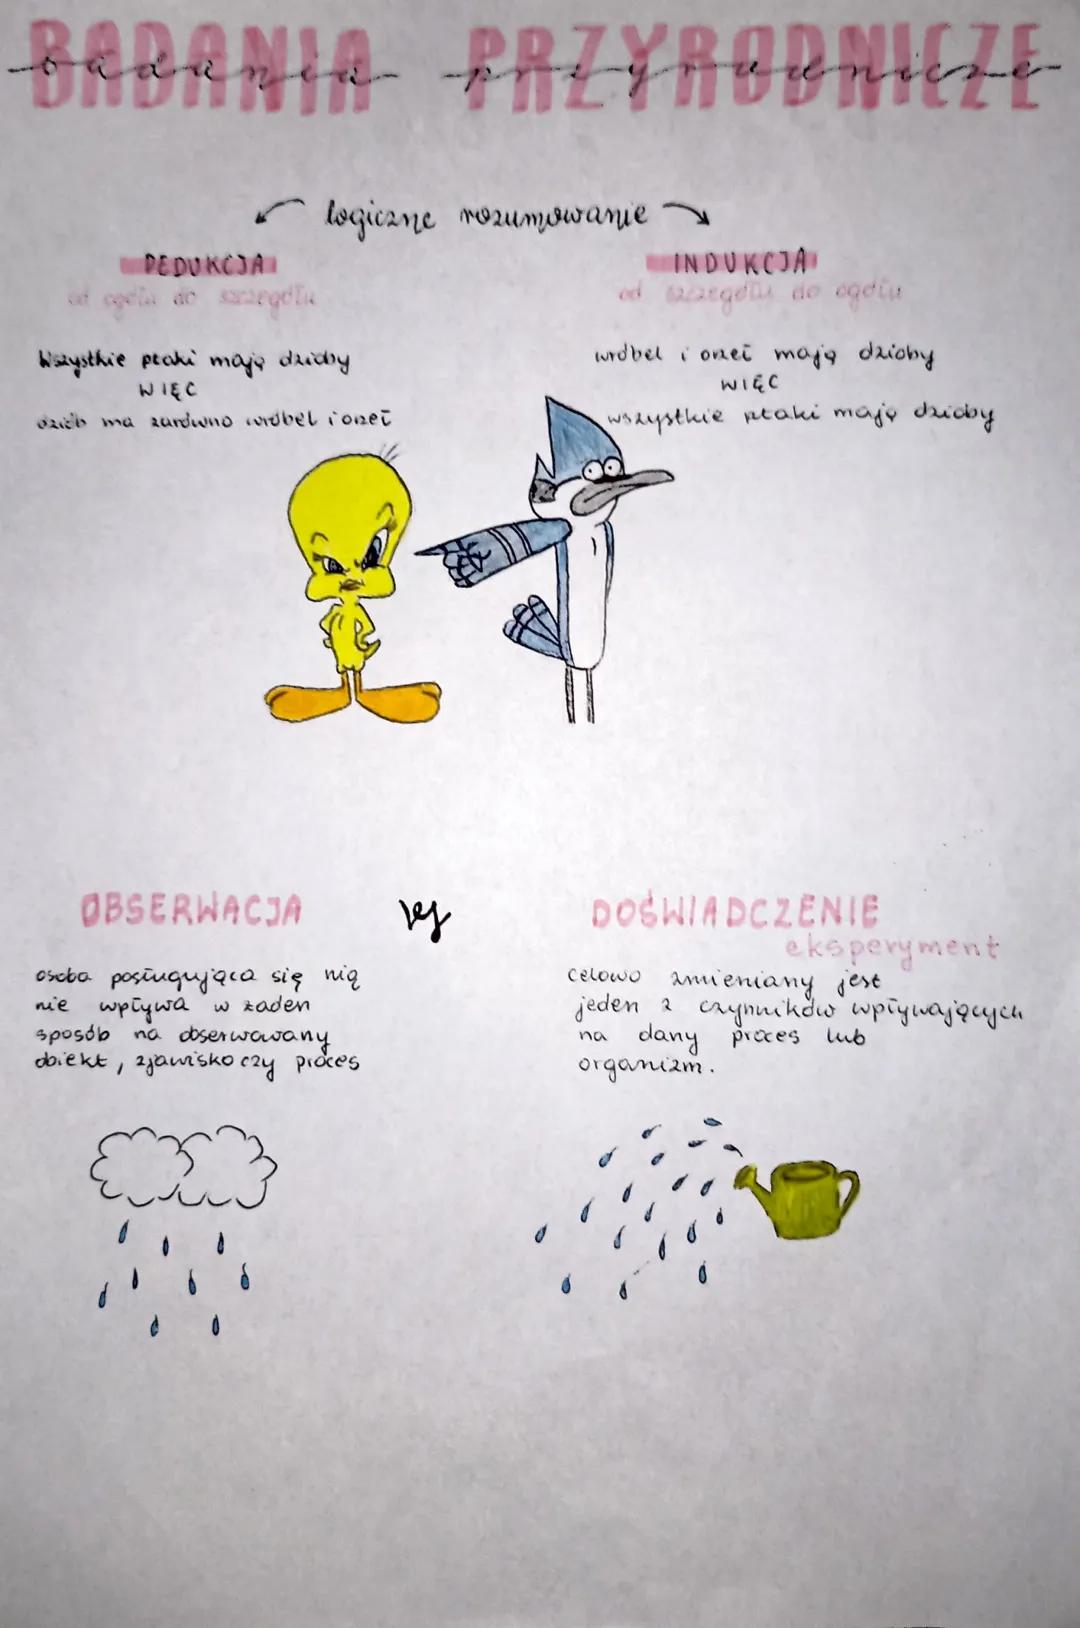 BADANIA PRZYRODNICZE
badania przyrodnicze
logiczne rozumowanie
DEDUKCJA
od ogółu do szczegółu
Wszystkie ptaki mają dzioby
WIĘC
dziób ma zarówno wróbel i orzeł
INDUKCJA
od szczegółu do ogółu
wróbel i orzeł mają dzioby
WIĘC
wszystkie ptaki mają dzioby
OBSERWACJA
osoba posługująca się nią
nie wpływa w żaden
sposób na obserwowany
obiekt, zjawisko czy proces
DOŚWIADCZENIE
eksperyment
celowo zmieniany jest
jeden z czynników wpływających
na dany proces lub
organizm.